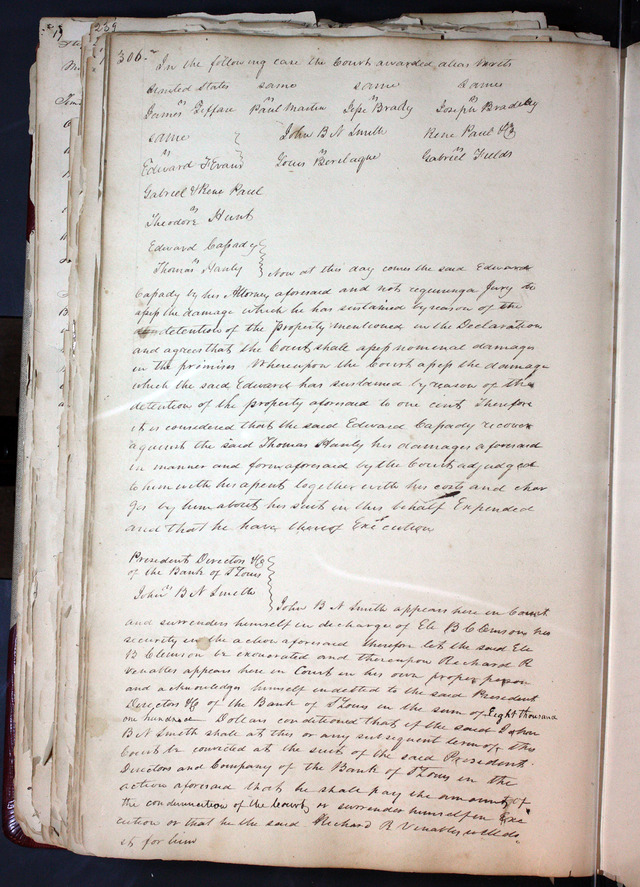 239
306.
In the following case the Court awarded alias writs
United States same same same
vs vs vs vs
James Tiffan Paul Martin Jesse Brady Joseph Bradley
same John B N Smith Rene Paul &C
vs vs vs
Edward F Evans Louis Gabriel Fields
Gabriel & Rene Paul
vs
Theodore Hunt
Edward Capady
vs
Thomas Hanly Now at this day comes the said Edward
Capady by his Attorney aforesaid and not requiring a Jury to
assess the damage which he has sustained by reason of the
detention of the property mentioned in the Declaration
and agrees that the Court shall assess nomenal damages
in the premises Whereupon the Court assess the damage
which the said Edward has sustained by reason of the
detention of the property aforesaid to one cent Therefore
it is considered that the said Edward Capady recover
against the said Thomas Hanly his damages aforesaid
in manner and form aforesaid by the Court adjudged
to him with his assent together with his costs and char
ges by him about his suit in this behalf Expended
and that he have thereof Execution
President Directors &C
of the Bank of St Louis
vs
John B N Smith
John B N Smith appears here in Court
and surrenders himself in discharge of Eli B Clemson his
security in the action aforesaid therefore let the said Eli
B Clemson be exonerated and thereupon Richard R
Venables appears here in Court in his own proper person
and acknowledges himself indebted to the said President
Directors &C of the Bank of St Louis in the sum of Eight thousand
one hundred Dollars conditioned that if the said John
B N Smith shall at this or any subsequent term of this
Court be convicted at the suit of the said President
Directors and Company of the Bank of St Louis in the
action aforesaid that he shall pay the amount of
the condemnation of the Court or surrender himself in Exe
cution or that he the said Richard R Venables will do
it for him